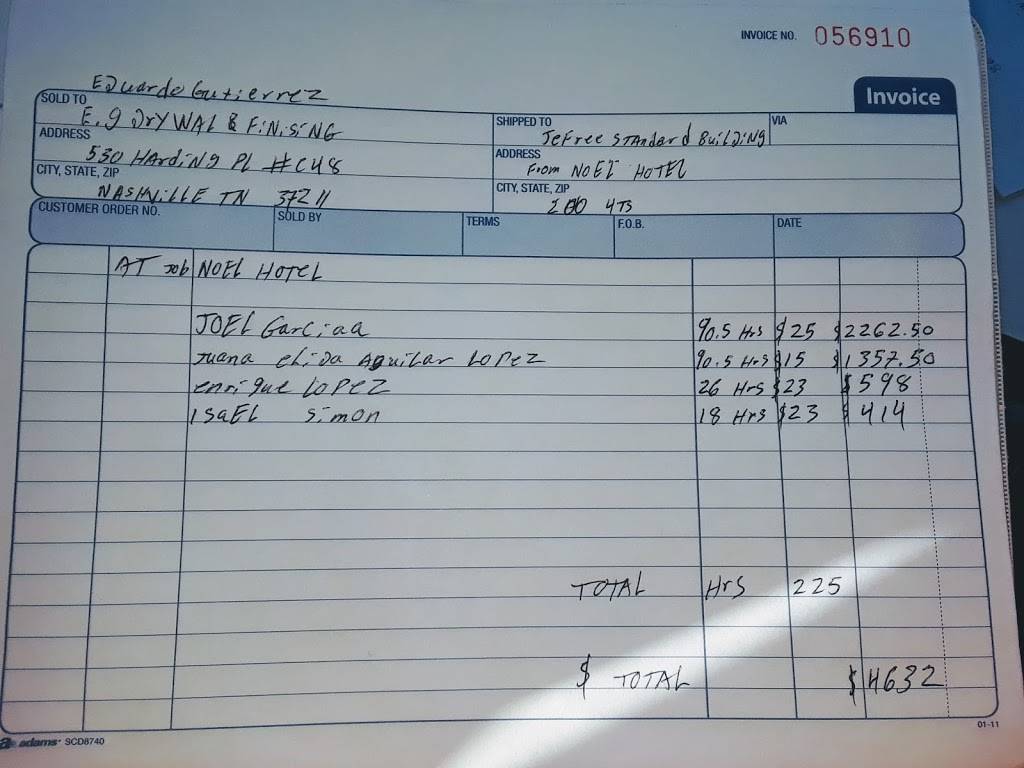 INVOICE NO. 056910
Invoice
Eduardo Gutierrez
SOLD TO
E,g DryWAL & FiNiSiNG
ADDRESS
530 HArdiNg PL #CU8
CITY, STATE, ZIP
NASHViLLE TN 37211
SHIPPED TO
JeFree STANdard BuilDiNg
VIA
ADDRESS
From NOEL HOTEL
CITY, STATE, ZIP
200 4TS
CUSTOMER ORDER NO.
SOLD BY
TERMS
F.O.B.
DATE
AT Job NOEL HOTEL
JOEL Garciaa 90.5 Hrs $25 $2262.50
Juana eliDa Aguilar LOPEZ 90.5 Hrs $15 $1357.50
enrique LOPEZ 26 Hrs $23 $598
ISaEL Simon 18 Hrs $23 $414
TOTAL Hrs 225
$ TOTAL $4632
adams SCD8740
01-11